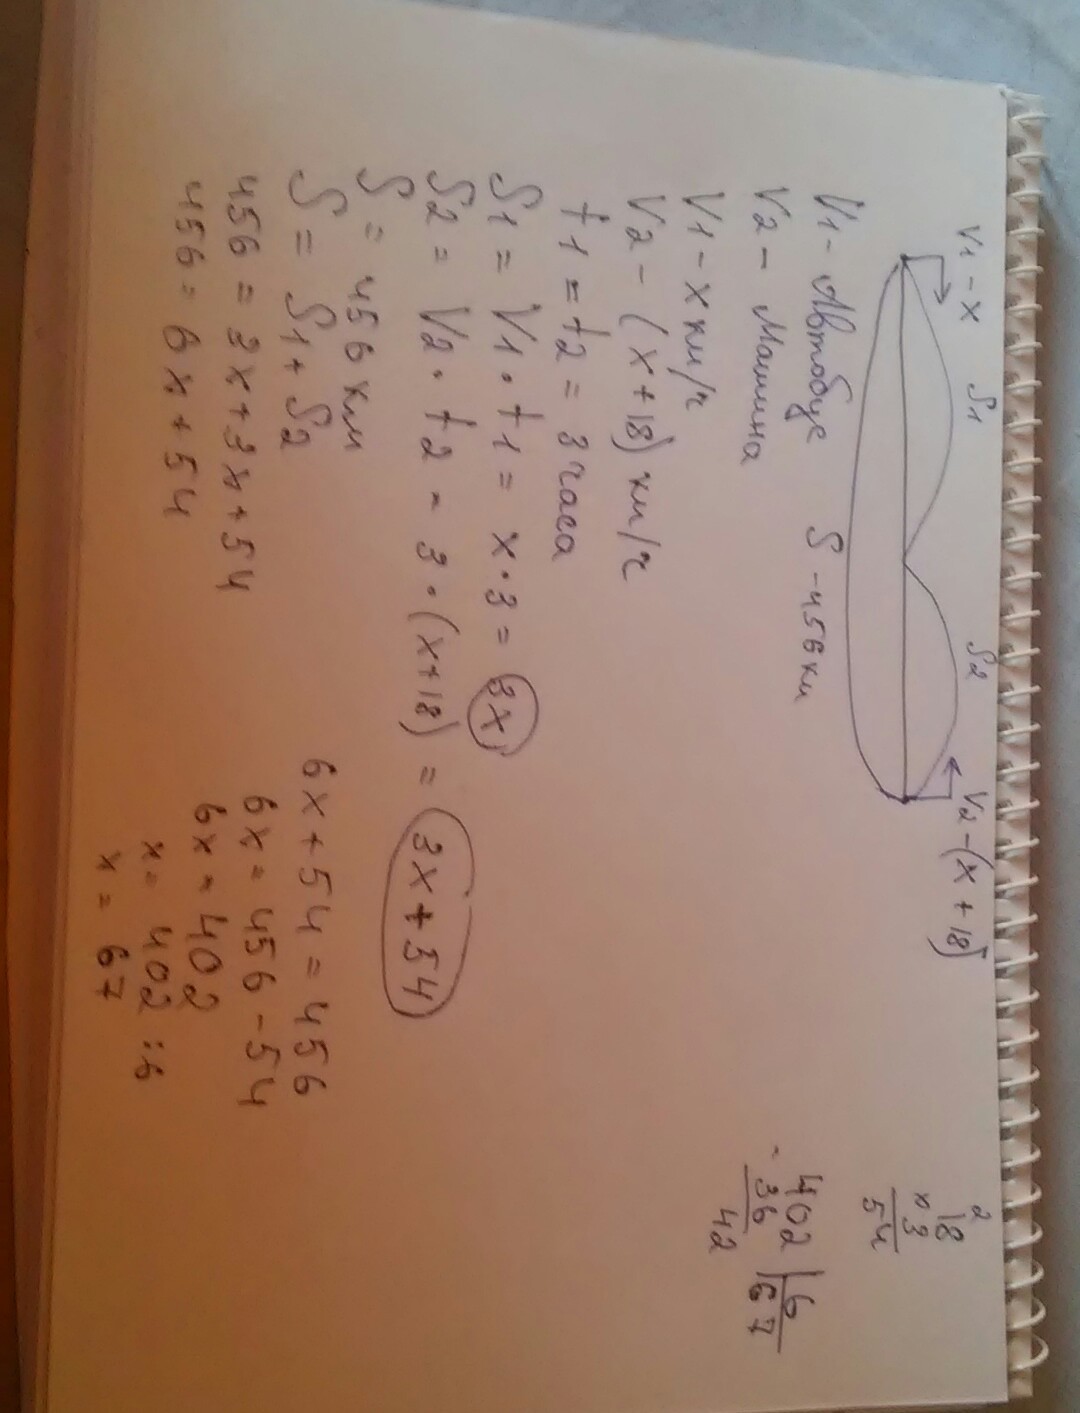 V1 - x S1 S2 V2 - (x + 18)
V1 - Автобус S - 456 км
V2 - Машина
V1 - x км/ч
V2 - (x + 18) км/ч
t1 = t2 = 3 часа
S1 = V1 · t1 = x · 3 = 3x
S2 = V2 · t2 = 3 · (x + 18) = 3x + 54
S = 456 км
S = S1 + S2
456 = 3x + 3x + 54
456 = 6x + 54
6x + 54 = 456
6x = 456 - 54
6x = 402
x = 402 : 6
x = 67
2
18
x 3
54
402 | 6
- 36 | 67
42